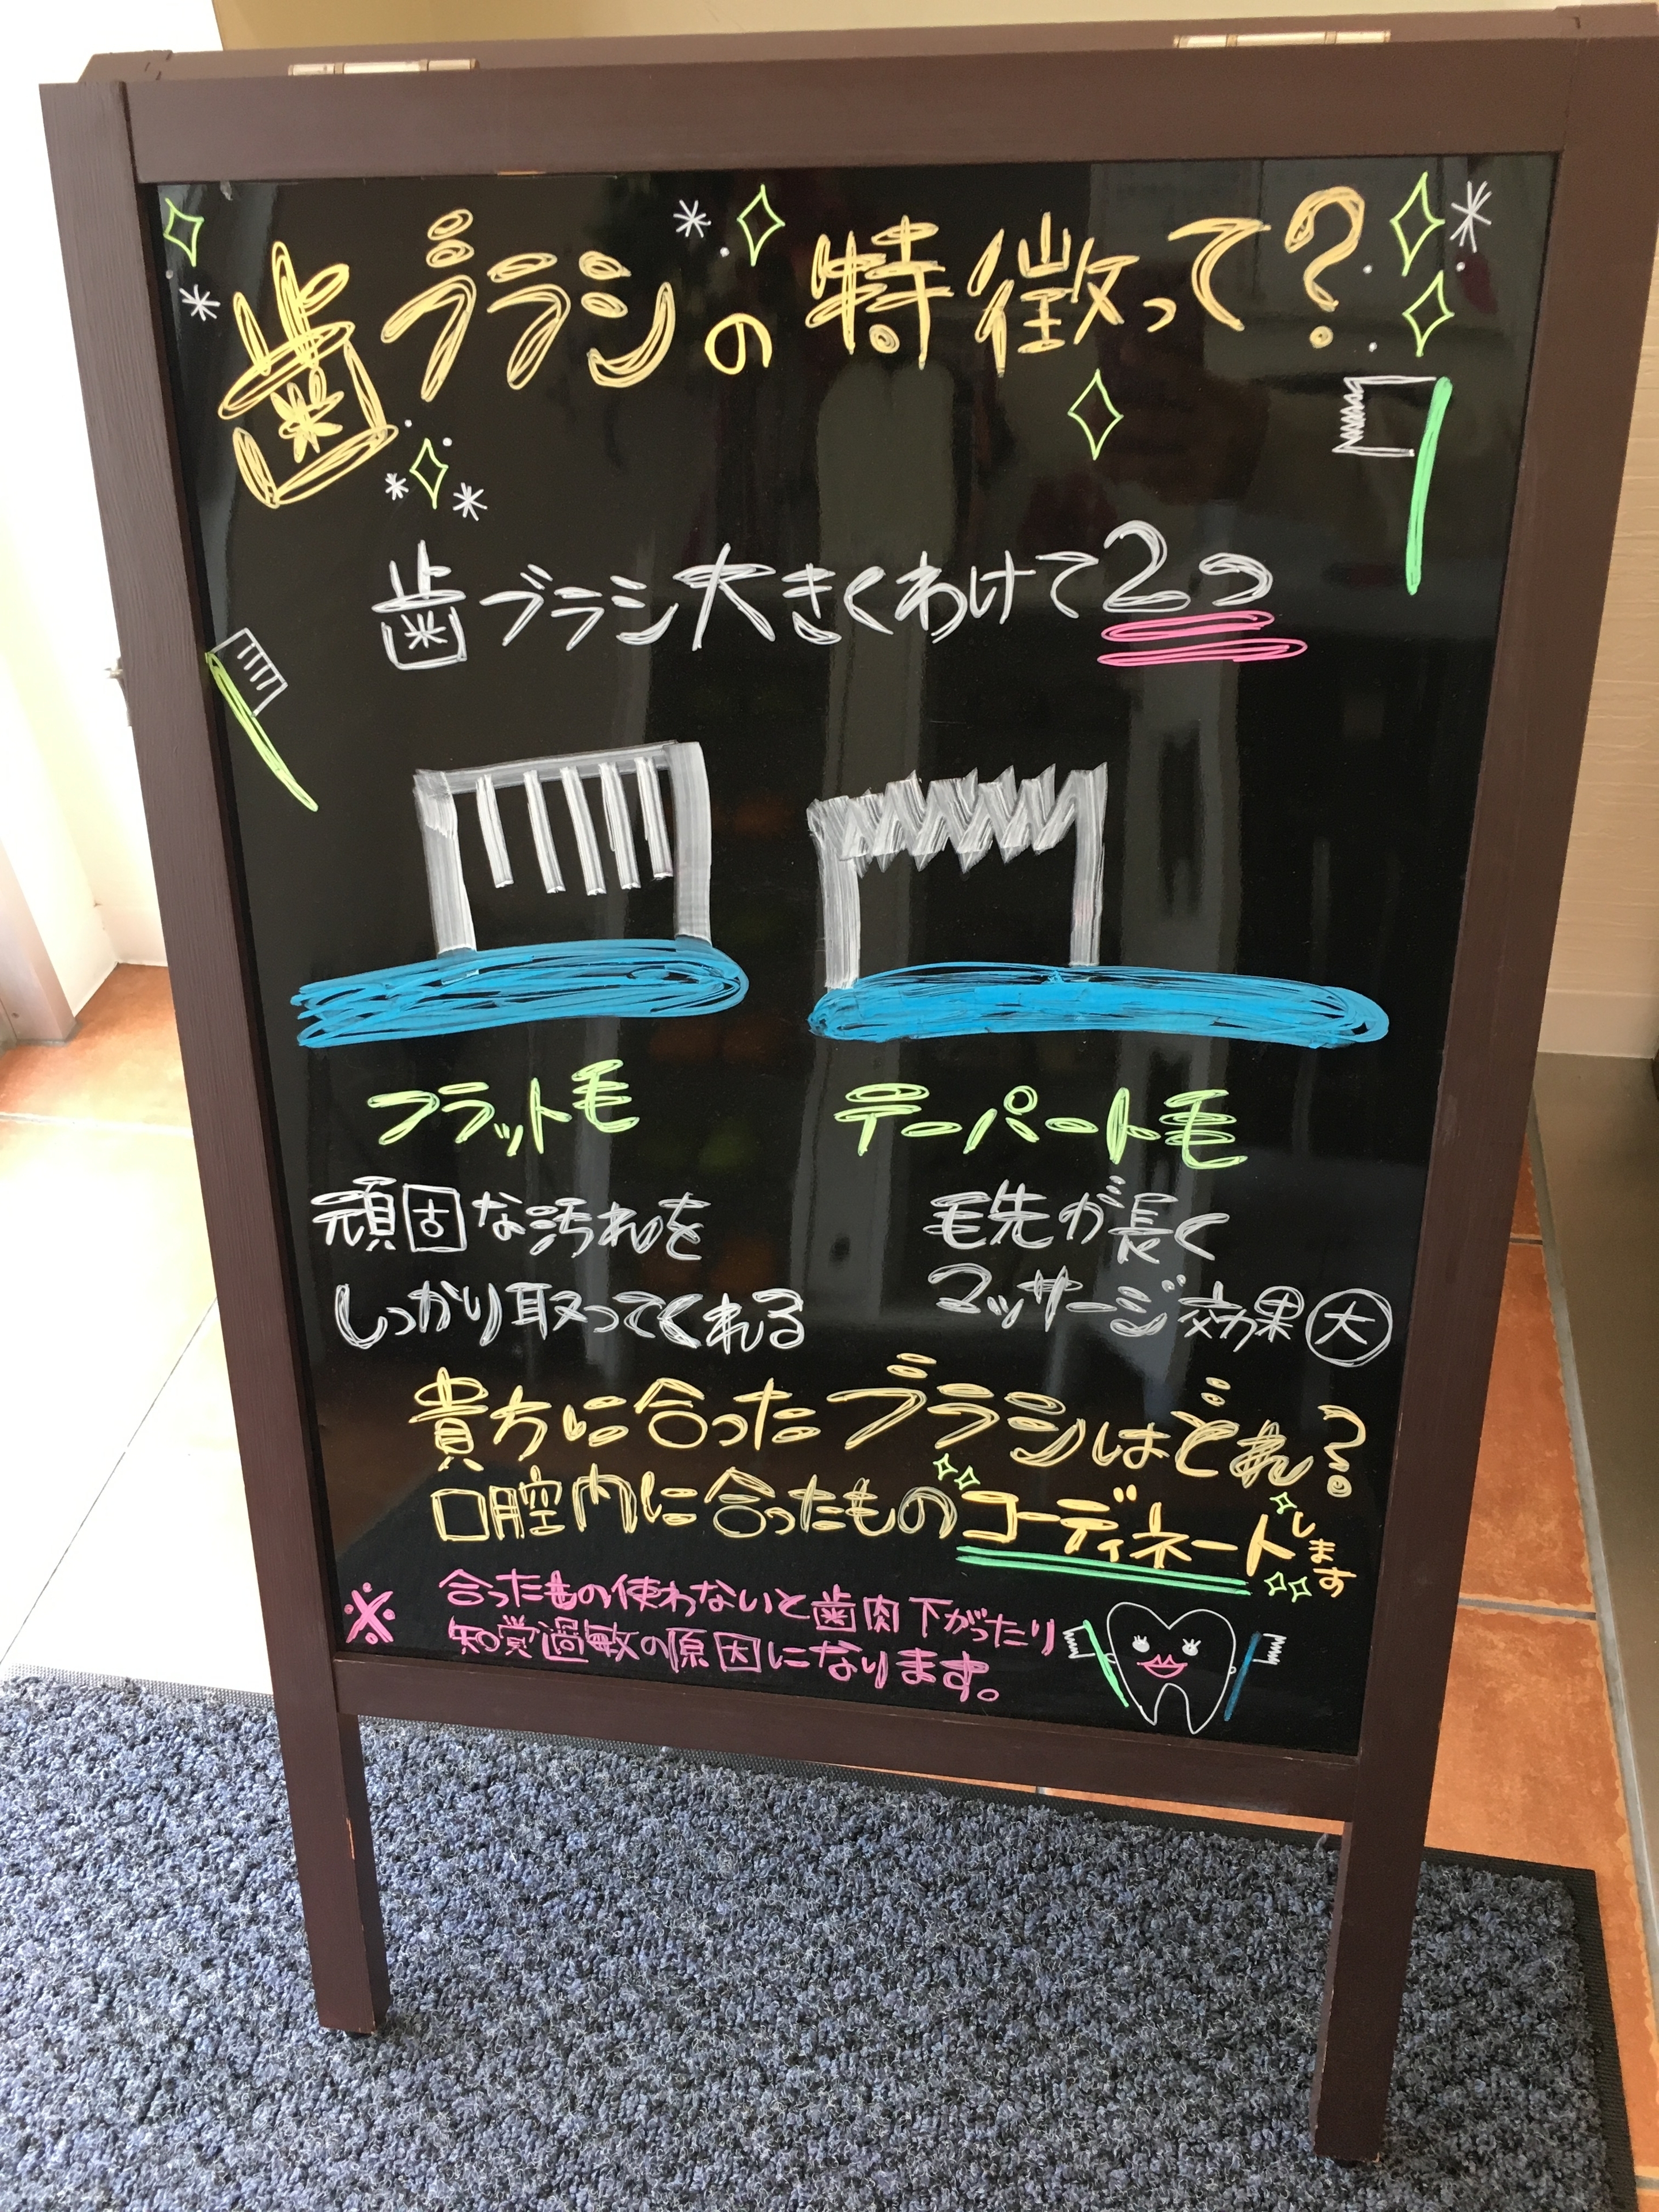 歯ブラシの特徴って?
歯ブラシ大きくわけて2つ
フラット毛
頑固な汚れを
しっかり取ってくれる
テーパート毛
毛先が長く
マッサージ効果大
貴方に合ったブラシはどれ?
口腔内に合ったものコーディネートします
※合ったもの使わないと歯肉下がったり
知覚過敏の原因になります。